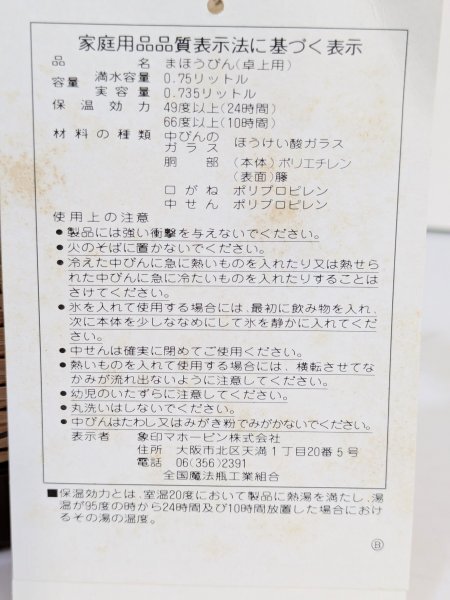 家庭用品品質表示法に基づく表示
品名 まほうびん(卓上用)
容量 満水容量 0.75リットル
実容量 0.735リットル
保温効力 49度以上(24時間)
66度以上(10時間)
材料の種類 中びんのガラス ほうけい酸ガラス
胴部 (本体)ポリエチレン
(表面)籐
口がね ポリプロピレン
中せん ポリプロピレン
使用上の注意
●製品には強い衝撃を与えないでください。
●火のそばに置かないでください。
●冷えた中びんに急に熱いものを入れたり又は熱せら
れた中びんに急に冷たいものを入れたりすることは
さけてください。
●氷を入れて使用する場合には、最初に飲み物を入れ、
次に本体を少しななめにして氷を静かに入れてくだ
さい。
●中せんは確実に閉めてご使用ください。
●熱いものを入れて使用する場合には、横転させてな
かみが流れ出ないように注意してください。
●幼児のいたずらに注意してください。
●丸洗いはしないでください。
●中びんはたわし又はみがき粉でみがかないでください。
表示者 象印マホービン株式会社
住所 大阪市北区天満1丁目20番5号
電話 06(356)2391
全国魔法瓶工業組合
■保温効力とは、室温20度において製品に熱湯を満たし、湯
温が95度の時から24時間及び10時間放置した場合におけ
るその湯の温度。
Ⓑ